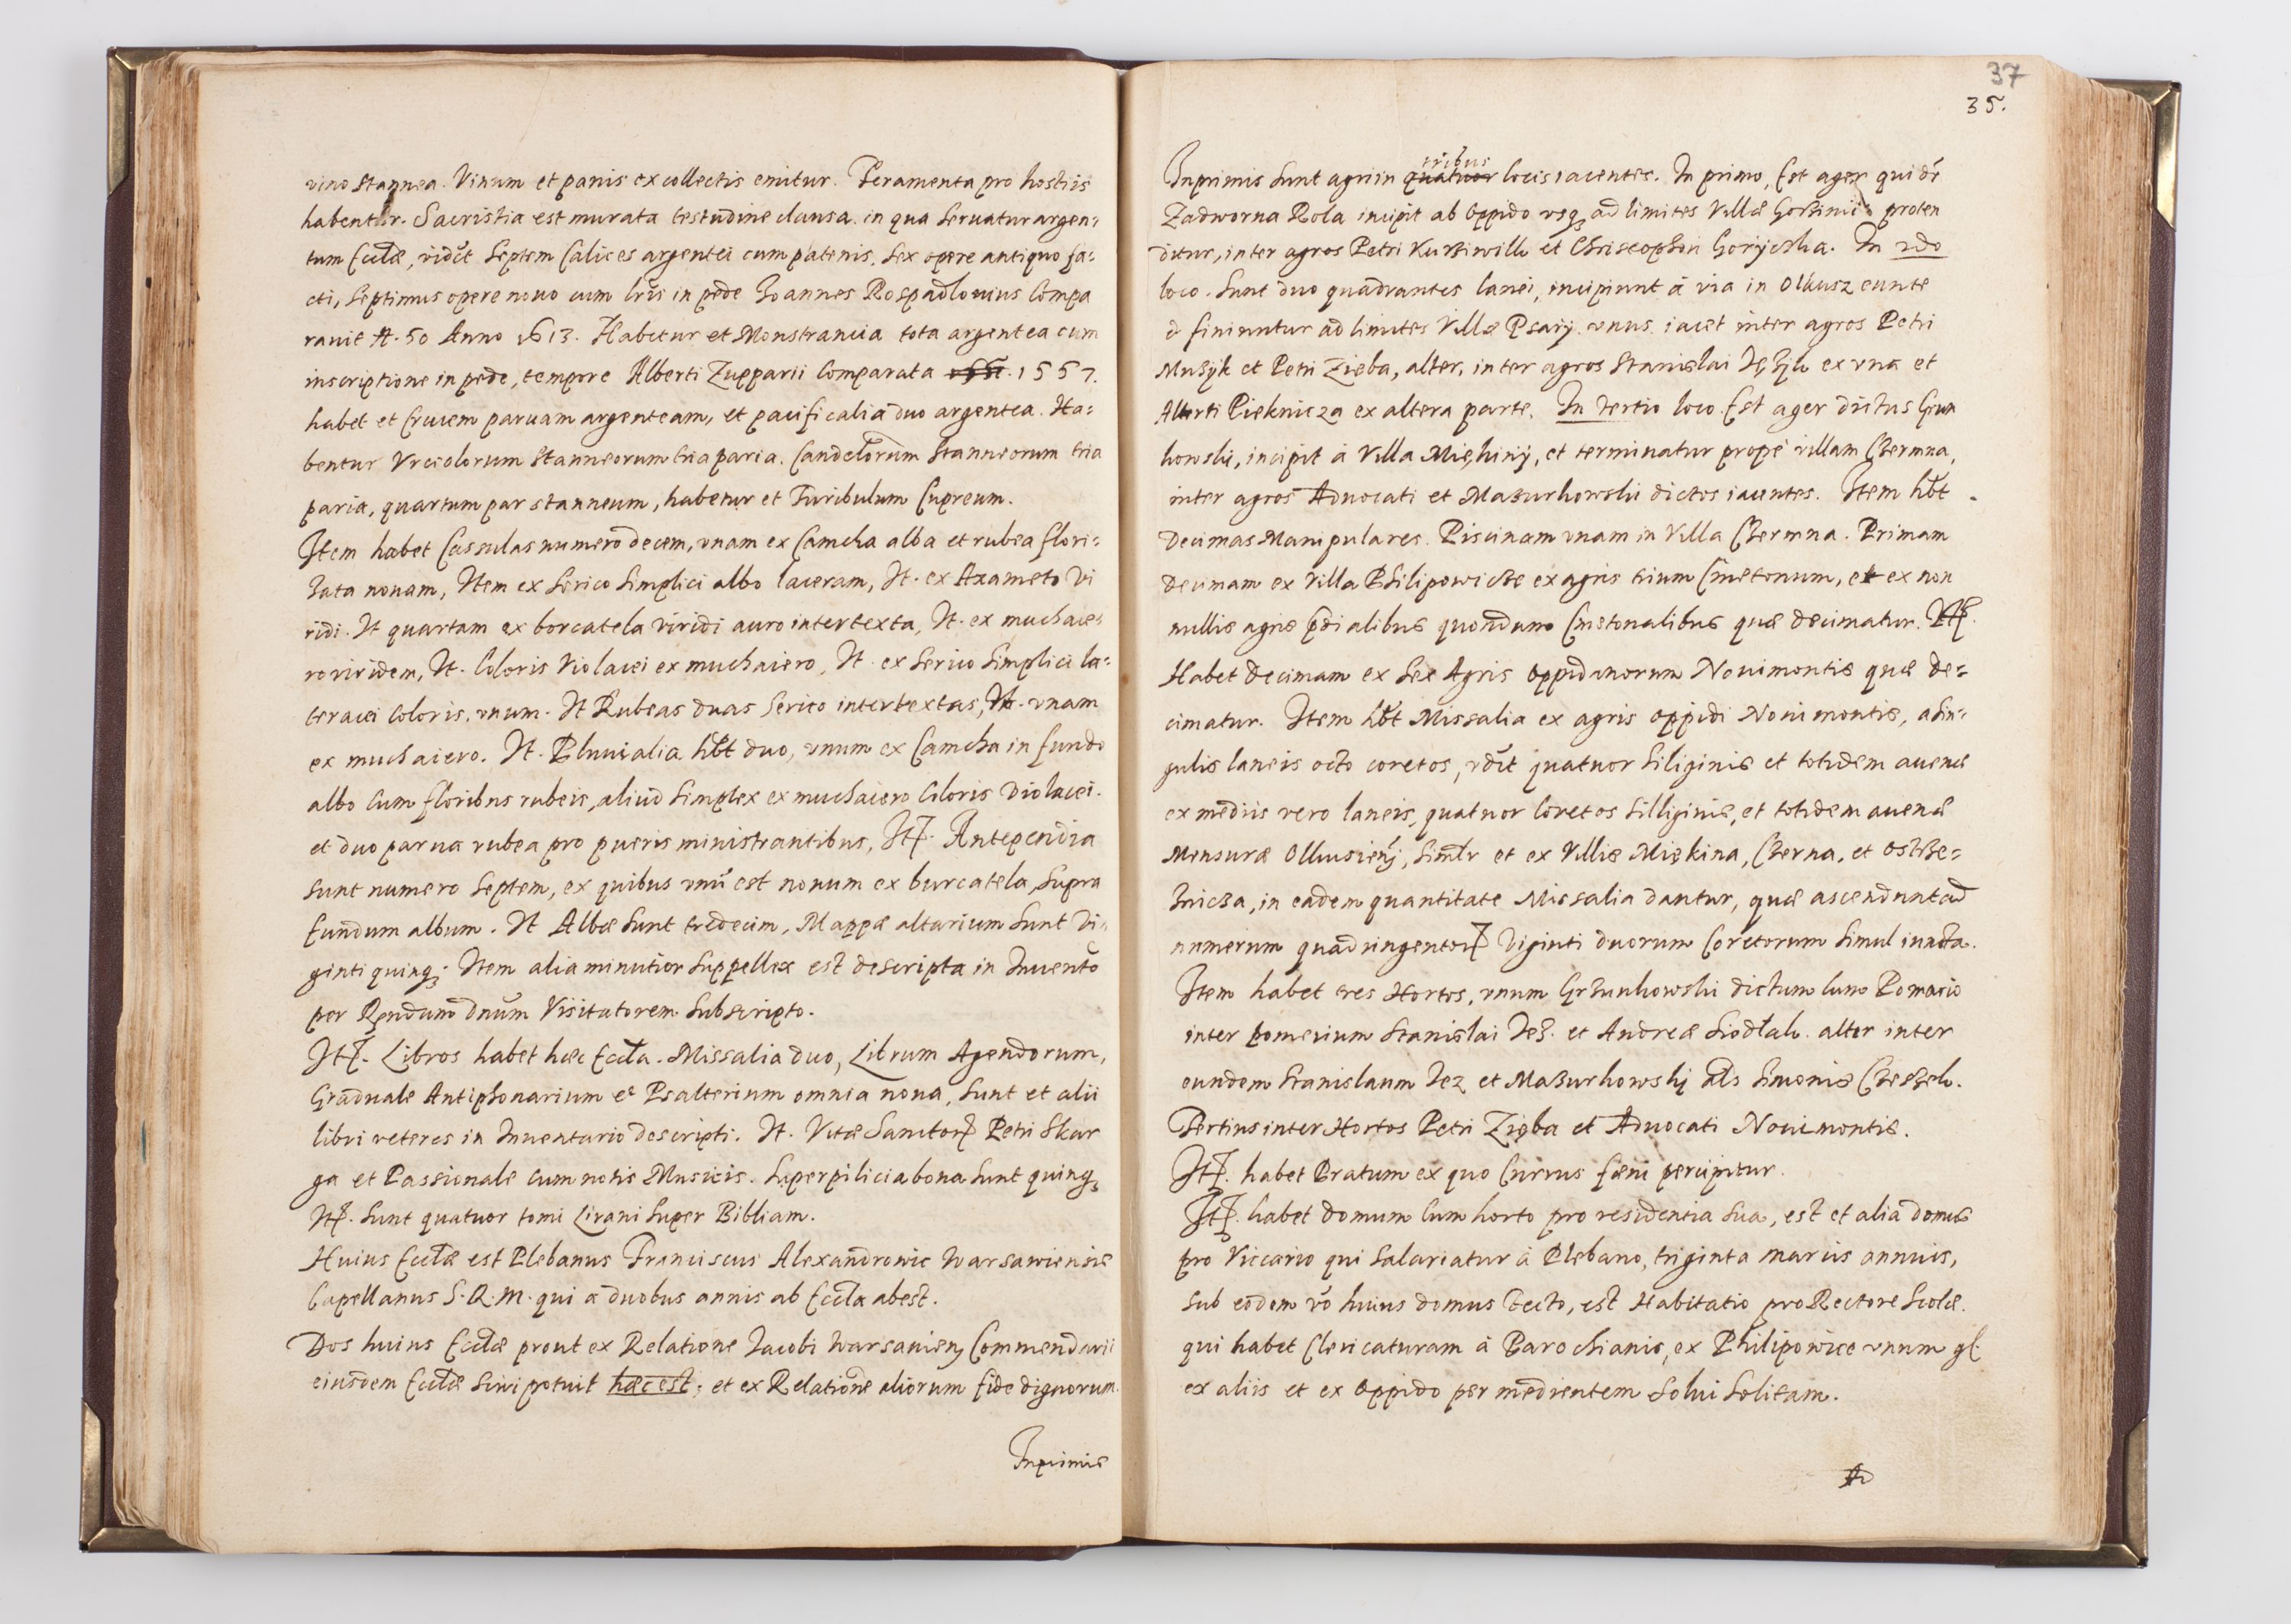 vino stannea. Vinum et panis ex collectis emitur. Feramenta pro hostiis
habentur. Sacristia est murata testudine clausa. in qua servatur argen=
tum Eccłæ, vidēt Septem Calices argentei cum patenis. Sex opere antiquo fa=
cti, Septimus opere nouo cum lrīs in pede Joannes Rospadlouius Compa
rauit 50 Anno 1613. Habetur et Monstrancia tota argentea cum
inscriptione in pede, tempore Alberti Zupparii Comparata 1557.
habet et Crucem paruam argenteam, et pacificalia duo argentea. Ha=
bentur Vrceolorum stanneorum tria paria. Candelorum stanneorum tria
paria, quartum par stanneum, habetur et Turibulum Cupreum.
Item habet Cassulas numero decem, vnam ex Camcha alba et rubea flori=
zata nouam, Item ex Serico Simplici albo laceram, It. ex Axameto Vi
ridi. It quartam ex borcatela viridi auro intertexta, It. ex muchaie=
ro viridem, It. Coloris Violacei ex muchaiero, It. ex Serico Simplici la=
teracei Coloris. vnum. It Rubeas duas Serico intertextas, It. vnam
ex muchaiero. It. Pluuialia hb̄t duo, vnum ex Camcha in fundo
albo Cum floribus rubeis, aliud Simplex ex muchaiero Coloris Violacei.
et duo parua rubea pro pueris ministrantibus, It. Antependia
sunt numero Septem, ex quibus vnū est nonum ex burcatela, Supra
fundum album. It Albæ Sunt tredecim, Mappæ altarium Sunt Vi=
ginti quinq; Item alia minutior Suppellex est descripta in Inuentō
per Rṇdum dnūm Visitatorem Subscripto.
It. Libros habet hæc Eccła. Missalia duo, Librum Agendorum,
Graduale Antiphonarium et Psalterium omnia noua, Sunt et alii
libri veteres in Inuentario descripti. It. Vitæ Sanctor Petri Skar
ga et Passionale Cum notis Musicis. Superpilicia bona Sunt quinq;
It. Sunt quatuor tomi Lirani Super Bibliam.
Huius Eccłæ est Plebanus Franciscus Alexandrowic Warsawiensis
Capellanus S.R.M. qui a duobus annis ab Eccła abest.
Dos huius Eccłæ prout ex Relatione Jacobi Warsavien Commendarii
eiusdem Eccłæ Sciri potuit hæc est; et ex Relatione aliorum fide dignorum.
Inprimis
37
35.
tribus
Inprimis Sunt agri in quatuor locis iacentes. In primo, Est ager qui dr̄
Zadworna Rola incipit ab Oppido vsq; ad limites Villæ proten
ditur, inter agros Petri et Christophori In 2do
loco. Sunt duo quadrantes lanei, incipiunt à via in Olkusz eunte
d finiuntur ad limites Villæ Psarÿ. vnus iacet inter agros Petri
Muszÿk et Petri Zięba, alter, inter agros Stanislai ex vna et
Alberti Pieknicza ex altera parte. In tertio loco. Est ager dictus Grun
howski, incipit à Villa Miękinÿ, et terminatur prope villam Czermna,
inter agros Aduocati et Mazurkowski dictos iacentes. Item hb̄t
Decimas Manipulares. Piscinam vnam in Villa Czermna. Primam
Decimam ex Villa Philipowicze ex agris trium Cmetonum, et ex non
nullis agris p̄dialibus quondam Cmetonalibus quæ decimatur. It.
Habet Decimam ex Sex Agris Oppidanorum Nouimontis quæ de=
cimatur. Item hb̄t Missalia ex agris Oppidi Noui montis, a Sin=
gulis laneis octo coretos, vdēt quatuor Siliginis et totidem auenæ
ex mediis vero laneis, quatuor Coretos Silliginis, et totidem auenæ
Mensuræ Olkusien, Simlr et ex Villis Miękina, Czerna, et Ostrze=
znicza, in eadem quantitate Missalia dantur, quæ ascendunt ad
numerum quadringentor Viginti duorum Coretorum Simul iuncta.
Item habet tres Hortos, vnum Grzunkowski dictum Cum Pomario
inter pomerium Stanislai Jez. et Andreæ Siodłak. alter inter
eundem Stanislaum Jez et Mazurkowskj als Simonis
Tertius inter Hortos Petri Zięba et Aduocati Noui montis.
It. habet Pratum ex quo Currus fæni percipitur.
It. habet domum Cum horto pro residentia Sua, est et alia domus
pro Viccario qui Salariatur à Plebano, triginta marcis annuis,
Sub eodem vō huius domus tecto, est Habitatio pro Rectore Scolæ.
qui habet Clericaturam à Parochianis, ex Philipowice vnum gl.
ex aliis et ex Oppido per medientem Solui Solitam.
Ad